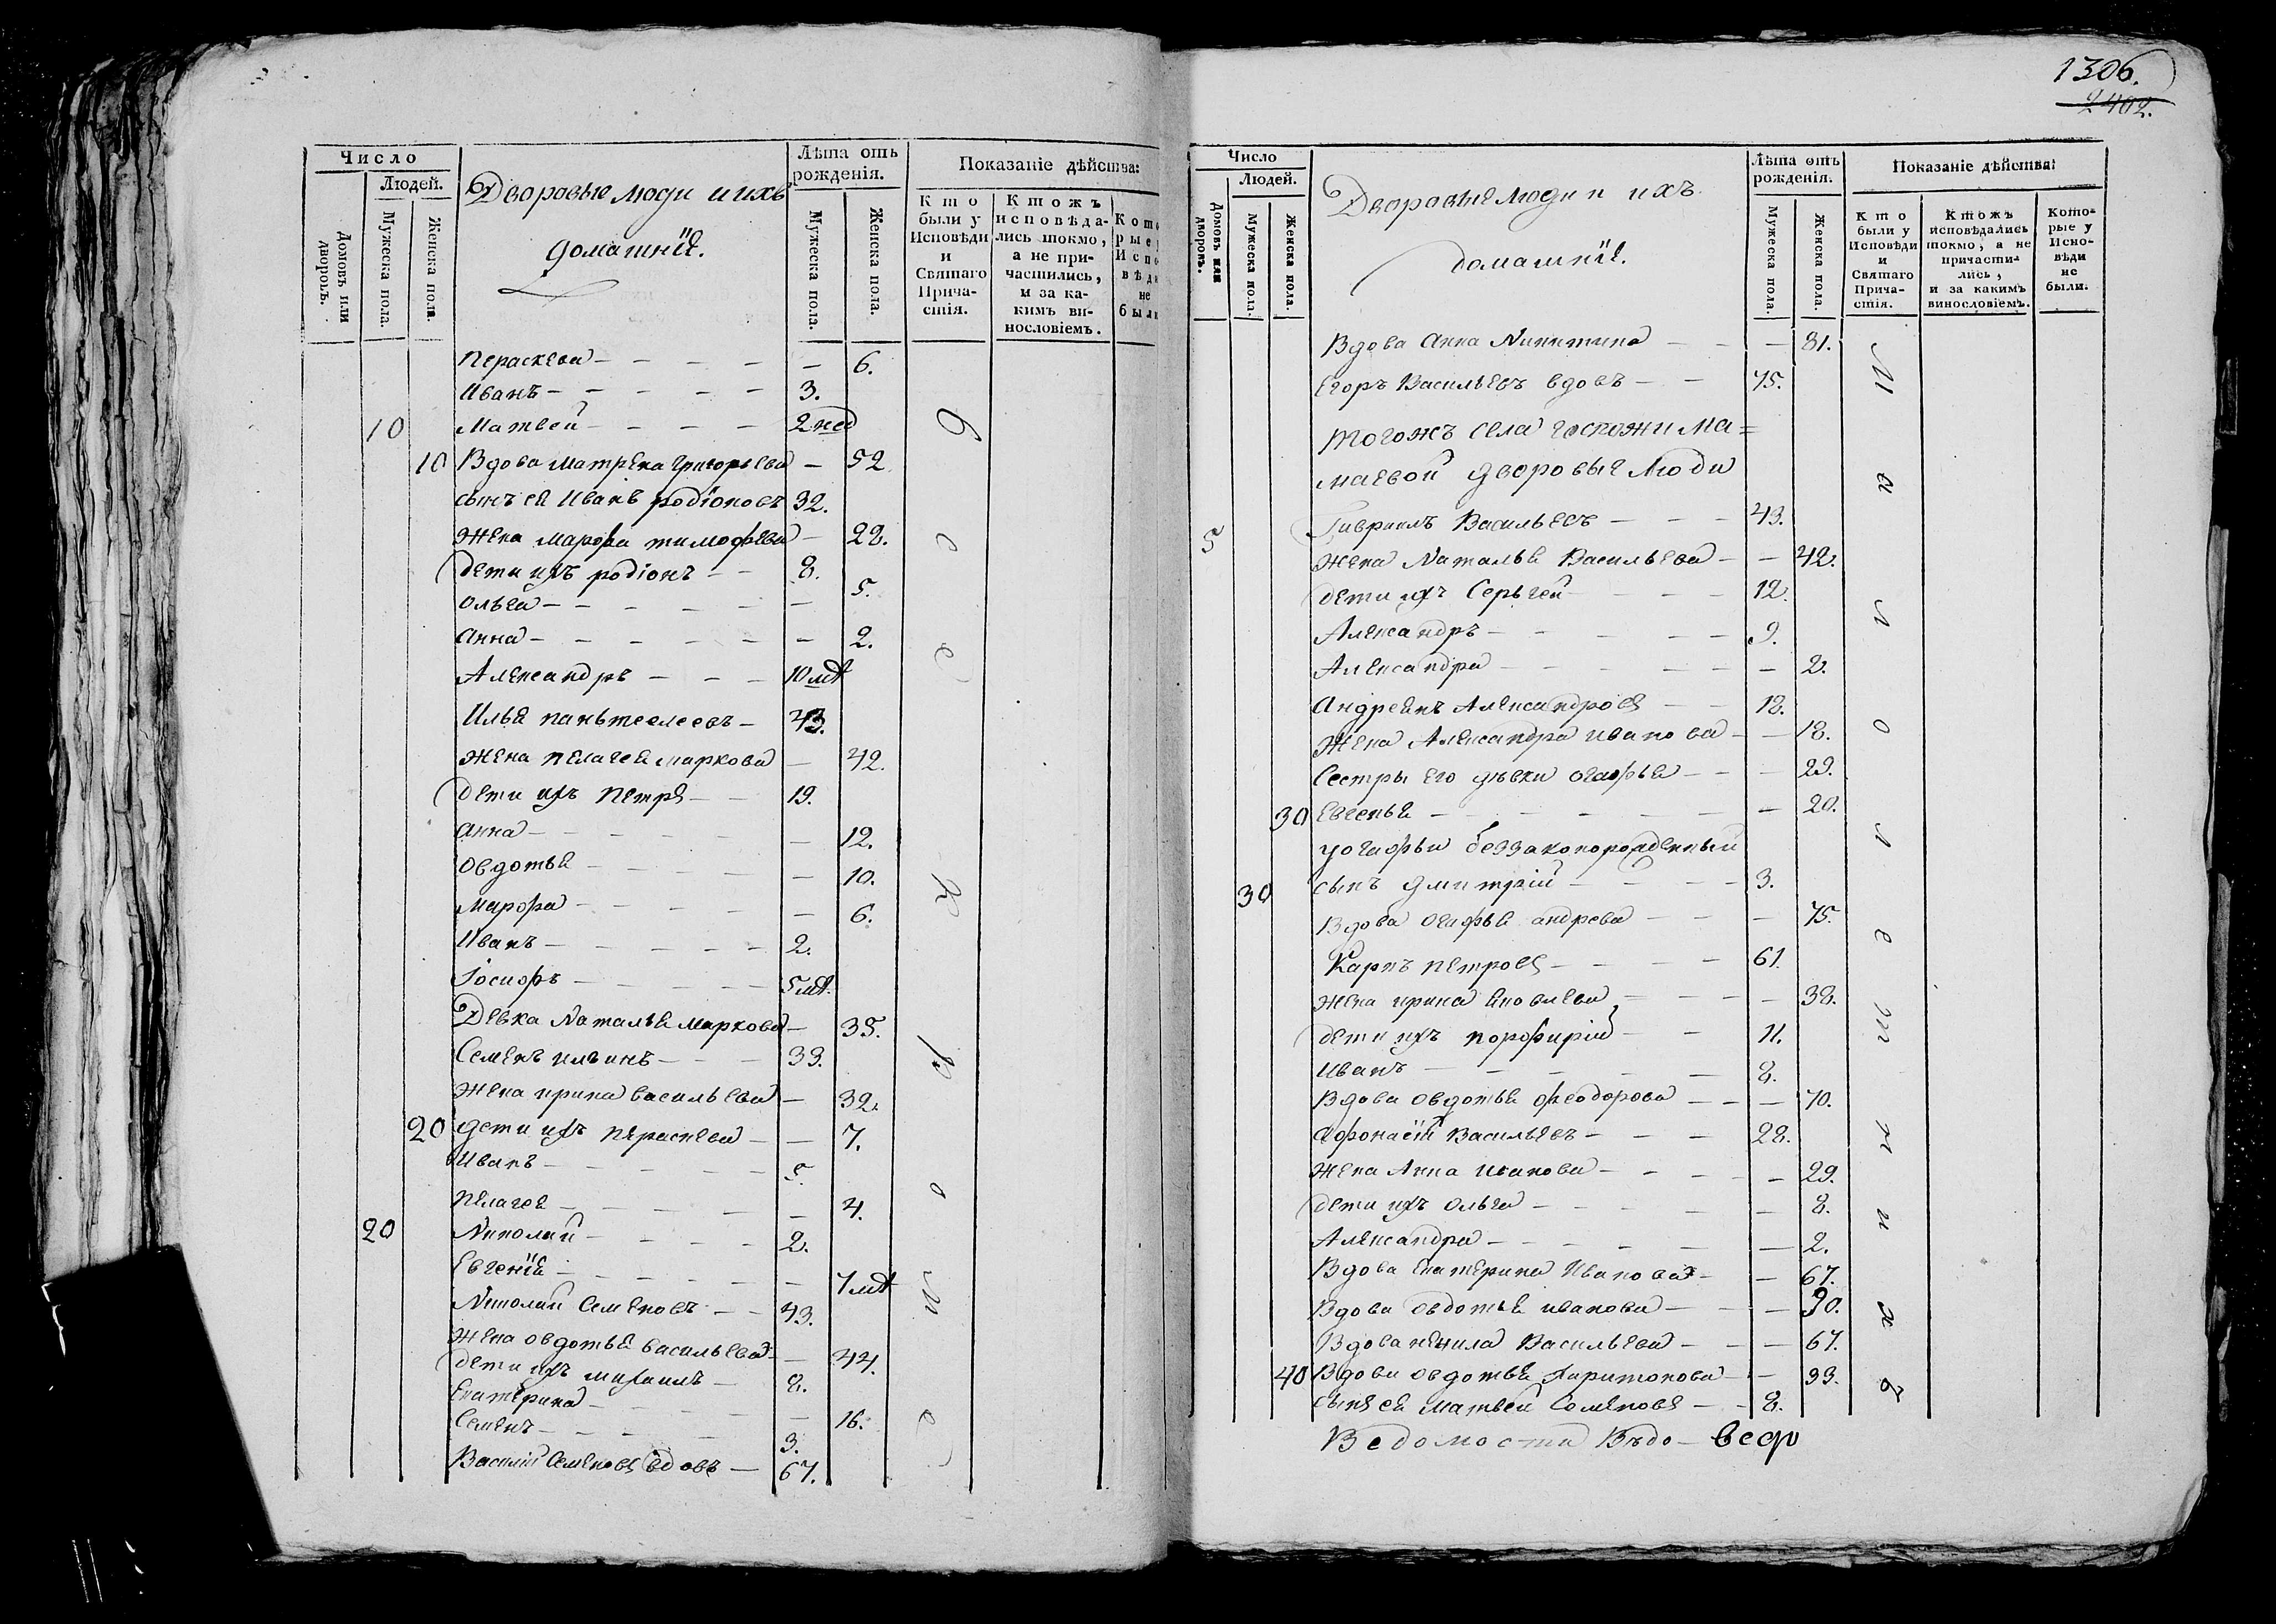 Число
Людей.
Домовъ или дворовъ.
Мужеска пола.
Женска пола.
Дворовые люди и ихъ
домашнїе.
Лѣта отъ рожденія.
Мужеска пола.
Женска пола.
Показаніе дѣйства:
Кто были у Исповѣди и Святаго Причастія.
Ктожъ исповѣдались токмо, а не причастились, и за какимъ винословіемъ.
Исповѣди не были
Пераскева — 6.
Иванъ — 3.
10 Матвей — 2 нед
10 Вдова Матрена Григорьева — 52
сынъ ея Иванъ родїоновъ 32.
Жена Марфа тимофѣева — 28.
Дети ихъ родїонъ — 8.
Ольга — 5.
Анна — 2.
Александръ — 10 мѣ
Илья паньтеелеевъ — 43.
жена пелагея маркова — 42.
Дети ихъ Петръ — 19.
Анна — 12.
Овдотья — 10.
Марфа — 6.
Иванъ — 2.
Іосифъ — 5 мѣ.
Девка Наталья Маркова — 35.
Семенъ ильинъ — 33.
Жена ирина васильева — 32.
20 Дети ихъ пераскева — 7.
Иванъ — 5.
Пелагея — 4.
20 Николай — 2.
Евгенїя — 7 мѣ
Николай Семеновъ — 43.
Жена овдотья васильева — 44.
Дети ихъ михаилъ — 8.
Екатерина — 16.
Семенъ — 3.
Василий Семеновъ вдовъ — 67.
1306.
2402.
Число
Людей.
Домовъ или дворовъ.
Мужеска пола.
Женска пола.
Дворовые люди и ихъ
домашнїе.
Лѣта отъ рожденія.
Мужеска пола.
Женска пола.
Показаніе дѣйства:
Кто были у Исповѣди и Святаго Причастія.
Ктожъ исповѣдались токмо, а не причастились, и за какимъ винословіемъ.
Которые у Исповѣди не были.
Вдова Анна Никитина — 81.
Егоръ Васильевъ вдовъ — 75.
Тогожъ села госпожи Ма=
маевой дворовые люди
5 Гавриилъ Васильевъ — 43.
Жена Наталья Васильева — 42.
Дети ихъ Серьгей — 12.
Александръ — 9.
Александра — 2.
Андреянъ Александровъ — 18.
Жена Александра иванова — 18.
Сестры его дѣвки огафья — 29.
30 Евгенья — 20.
у огафьи беззаконорожденный
30 сынъ Дмитрий — 3.
Вдова огафья андреева — 75.
Карпъ петровъ — 61.
Жена ирина яковлева — 38.
Дети ихъ порфирій — 11.
Иванъ — 8.
Вдова овдотья феодорова — 70.
Афонасїй Васильевъ — 28.
Жена Анна иванова — 29.
Дети ихъ Ольга — 8.
Александра — 2.
Вдова Екатерина Иванова — 67.
Вдова овдотья иванова — 90.
Вдова ненила Васильева — 67.
40 Вдова овдотья Харитонова — 33.
сынъ ея Матвей Семеновъ — 8.